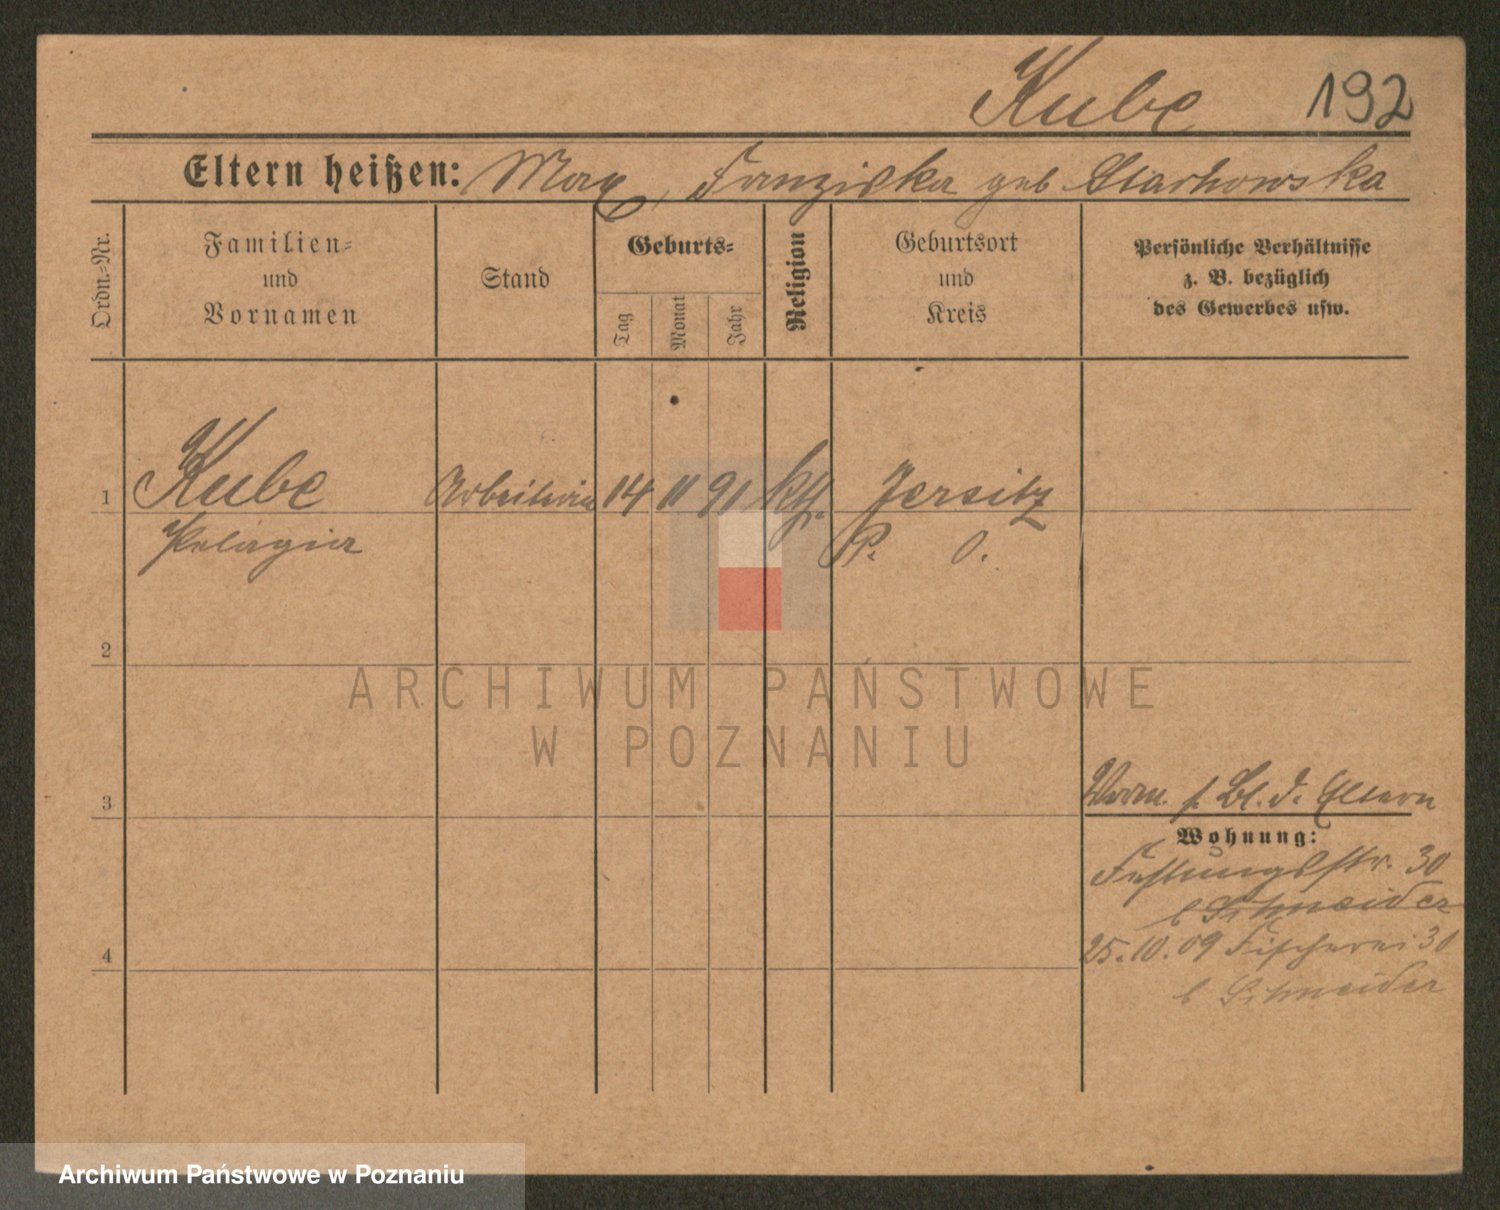 Kube 192
Eltern heißen: Max, Franziska geb Starkowska
Ordn.-Nr.
Familien-
und
Vornamen
Stand
Geburts-
Tag
Monat
Jahr
Religion
Geburtsort
und
Kreis
Persönliche Verhältnisse
z. B. bezüglich
des Gewerbes usw.
1 Kube Arbeiterin 14 11 91 kth. Jersitz
Pelagia P. O.
2
ARCHIWUM PAŃSTWOWE
W POZNANIU
3 Vorm. s. Bl. d. Eltern
Wohnung:
Festungsstr. 30
b Schneider
4 25.10.09 Fischerei 30
b Schneider
Archiwum Państwowe w Poznaniu